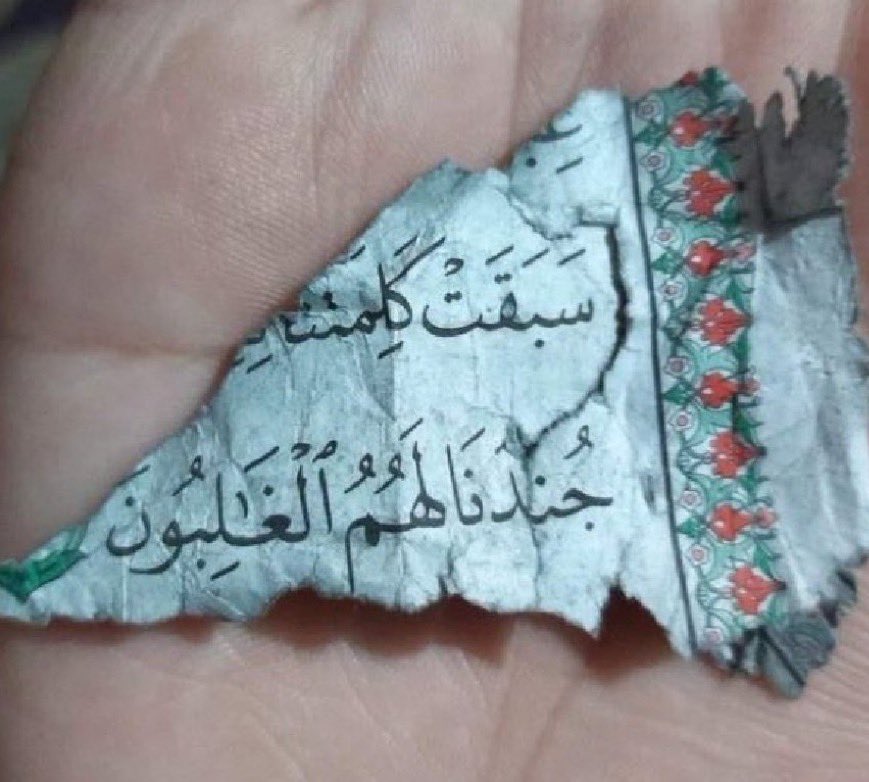 سَبَقَتْ كَلِمَتُنَا
جُندَنَا لَهُمُ ٱلْغَـٰلِبُونَ